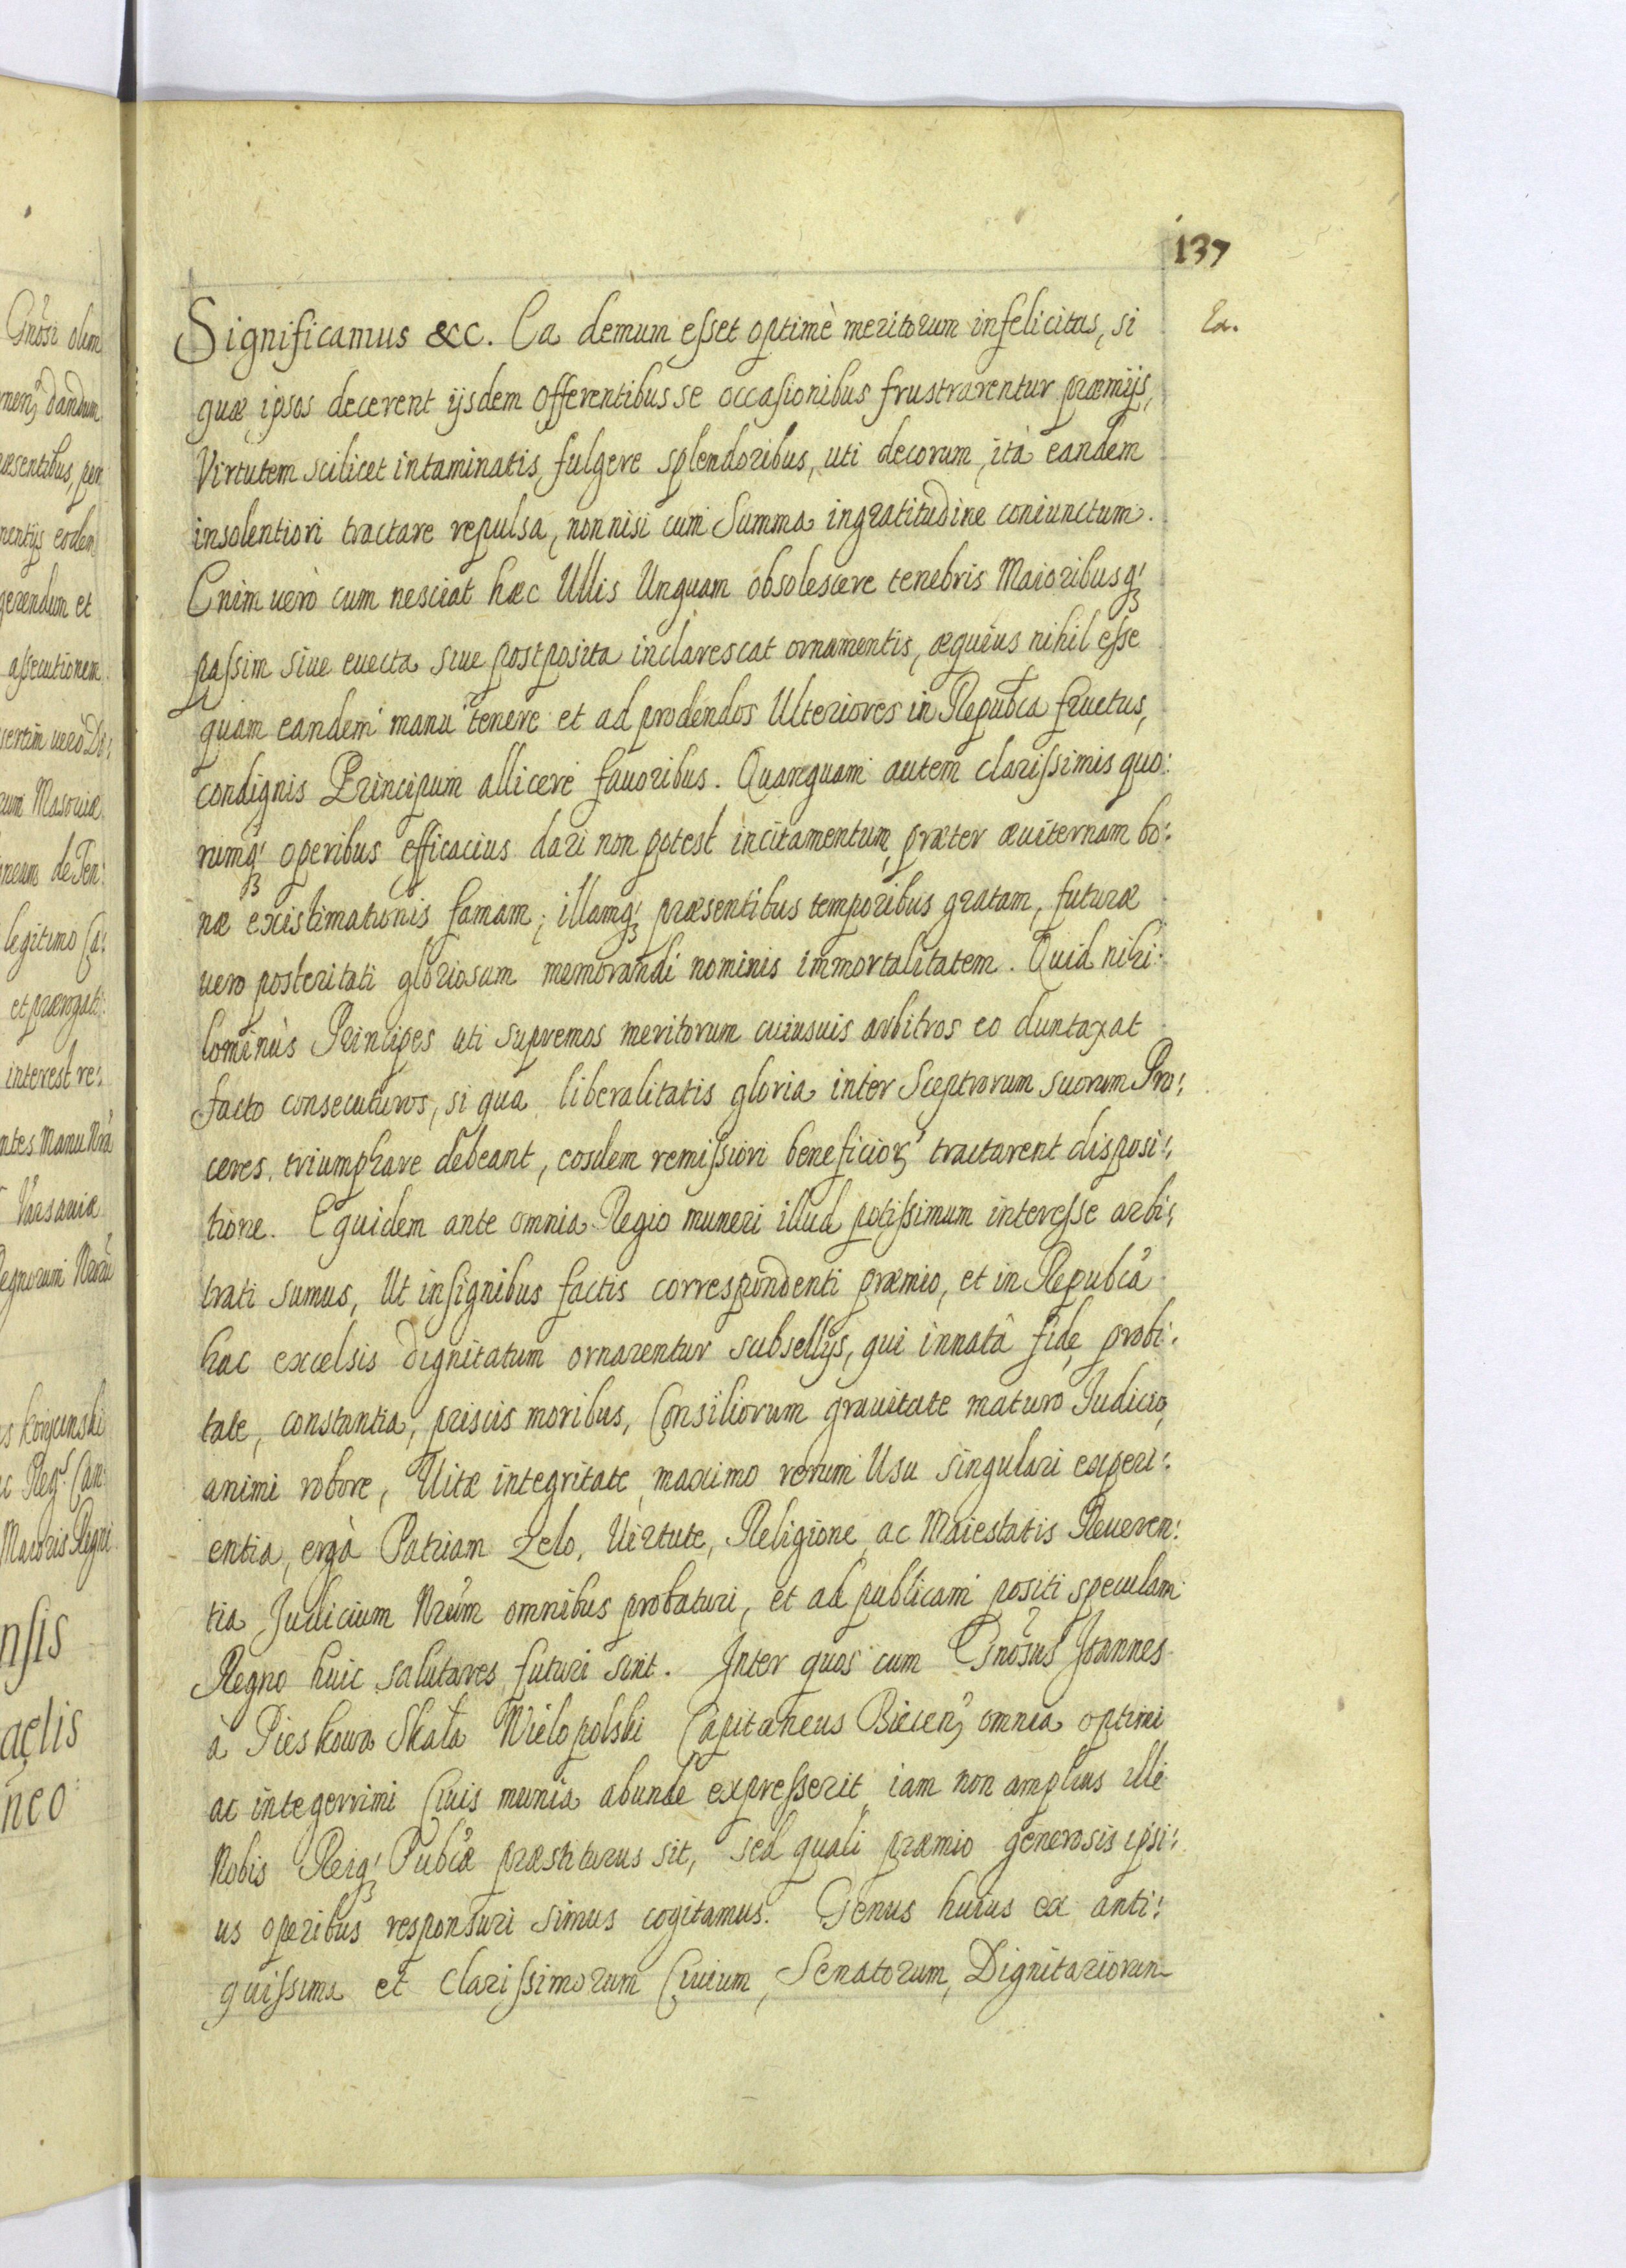 137
Ea.
Significamus &c. Ea demum esset optimè meritorum infelicitas, si
quæ ipsos decerent ijsdem offerentibus se occasionibus frustrarentur præmijs,
Virtutem scilicet intaminatis fulgere splendoribus, uti decorum, ità eandem
insolentiori tractare repulsa, non nisi cum Summa ingratitudine coniunctum.
Enim uerò cum nesciat hæc Ullis Unquam obsolescere tenebris Maioribusq́ꝫ
passim siue euecta siue postposita inclarescat ornamentis, æquius nihil esse
quam eandem manu tenere et ad prodendos Ulteriores in Repub̃ca fructus,
condignis Principum allicere fauoribus. Quanquam autem clarissimis quo:
rumq́ꝫ operibus efficacius dari non potest incitamentum, præter æuiternam bo:
næ existimationis famam, illamq́ꝫ præsentibus temporibus gratam, futuræ
uero posteritati gloriosam memorandi nominis immortalitatem. Quid nihi:
lominùs Principes uti supremos meritorum cuiusuis arbitros eo duntaxat
facto consecuturos, si qua liberalitatis gloria inter Sceptrorum suorum Pro:
ceres triumphare debeant, eosdem remissiori beneficioꝝ tractarent disposi:
tione. Equidem ante omnia Regio muneri illud potissimum interesse arbi:
trati sumus, Ut insignibus factis correspondenti præmio, et in Repub̃ca
hac excelsis dignitatum ornarentur subsellijs, qui innatâ fide, probi:
tate, constantia, priscis moribus, Consiliorum grauitate maturo Judicio,
animi robore, Uitæ integritate, maximo rerum Usu singulari experi:
entia, ergà Patriam Zelo, Uirtute, Religione, ac Maiestatis Reueren:
tia Judicium Nr̃um omnibus probaturi, et ad publicam positi speculam
Regno huic salutares futuri sint. Inter quos cum Gnõsus Joannes
à Pieskowa Skała Wielopolski Capitaneus Biecenꝫ omnia optimi
ac integerrimi Ciuis munia abunde expresserit iam non amplius ille
Nobis Reiq́ꝫ Pub̃cæ præstiturus sit, sed quali præmio generosis ipsi:
us operibus responsuri simus cogitamus. Genus huius ex anti:
quissima et clarissimorum Ciuium, Senatorum, Dignitariorum